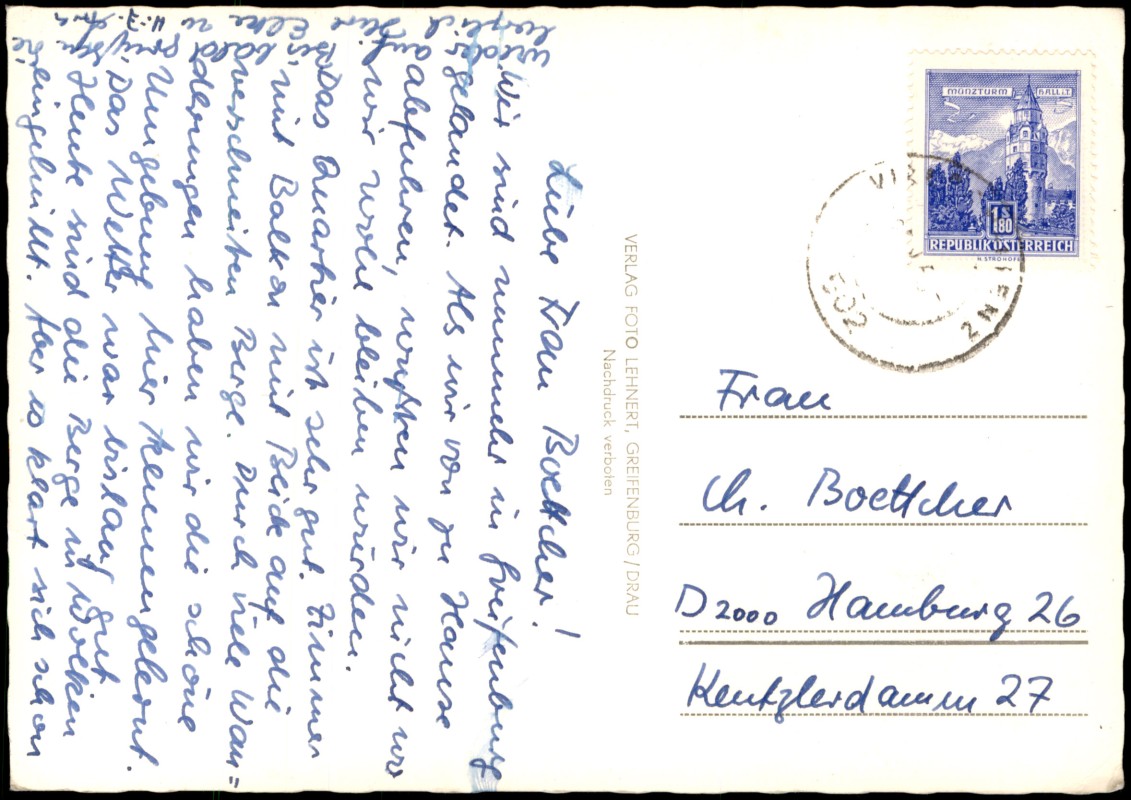 Liebe Frau Boettcher!
Wir sind nunmehr in Greifenburg
gelandet. Als wir von zu Hause
abfuhren, wußten wir nicht wo
wir wohl bleiben würden.
Das Quartier ist sehr gut. Zimmer
mit Balkon mit Blick auf die
verschneiten Berge. Durch viele Wan=
derungen haben wir die schöne
Umgebung hier kennengelernt.
Das Wetter war bislang gut
Heute sind die Berge in Wolken
eingehüllt. Aber so klart sich schon
wieder auf. Bis bald
herzlich Elke u H.-J.
VERLAG FOTO LEHNERT, GREIFENBURG/DRAU
Nachdruck verboten
MÜNZTURM HALL i.T.
1.80 S
REPUBLIK ÖSTERREICH
H. STROHOFER
502
Frau
Ch. Boettcher
D 2000 Hamburg 26
Kentzlerdamm 27